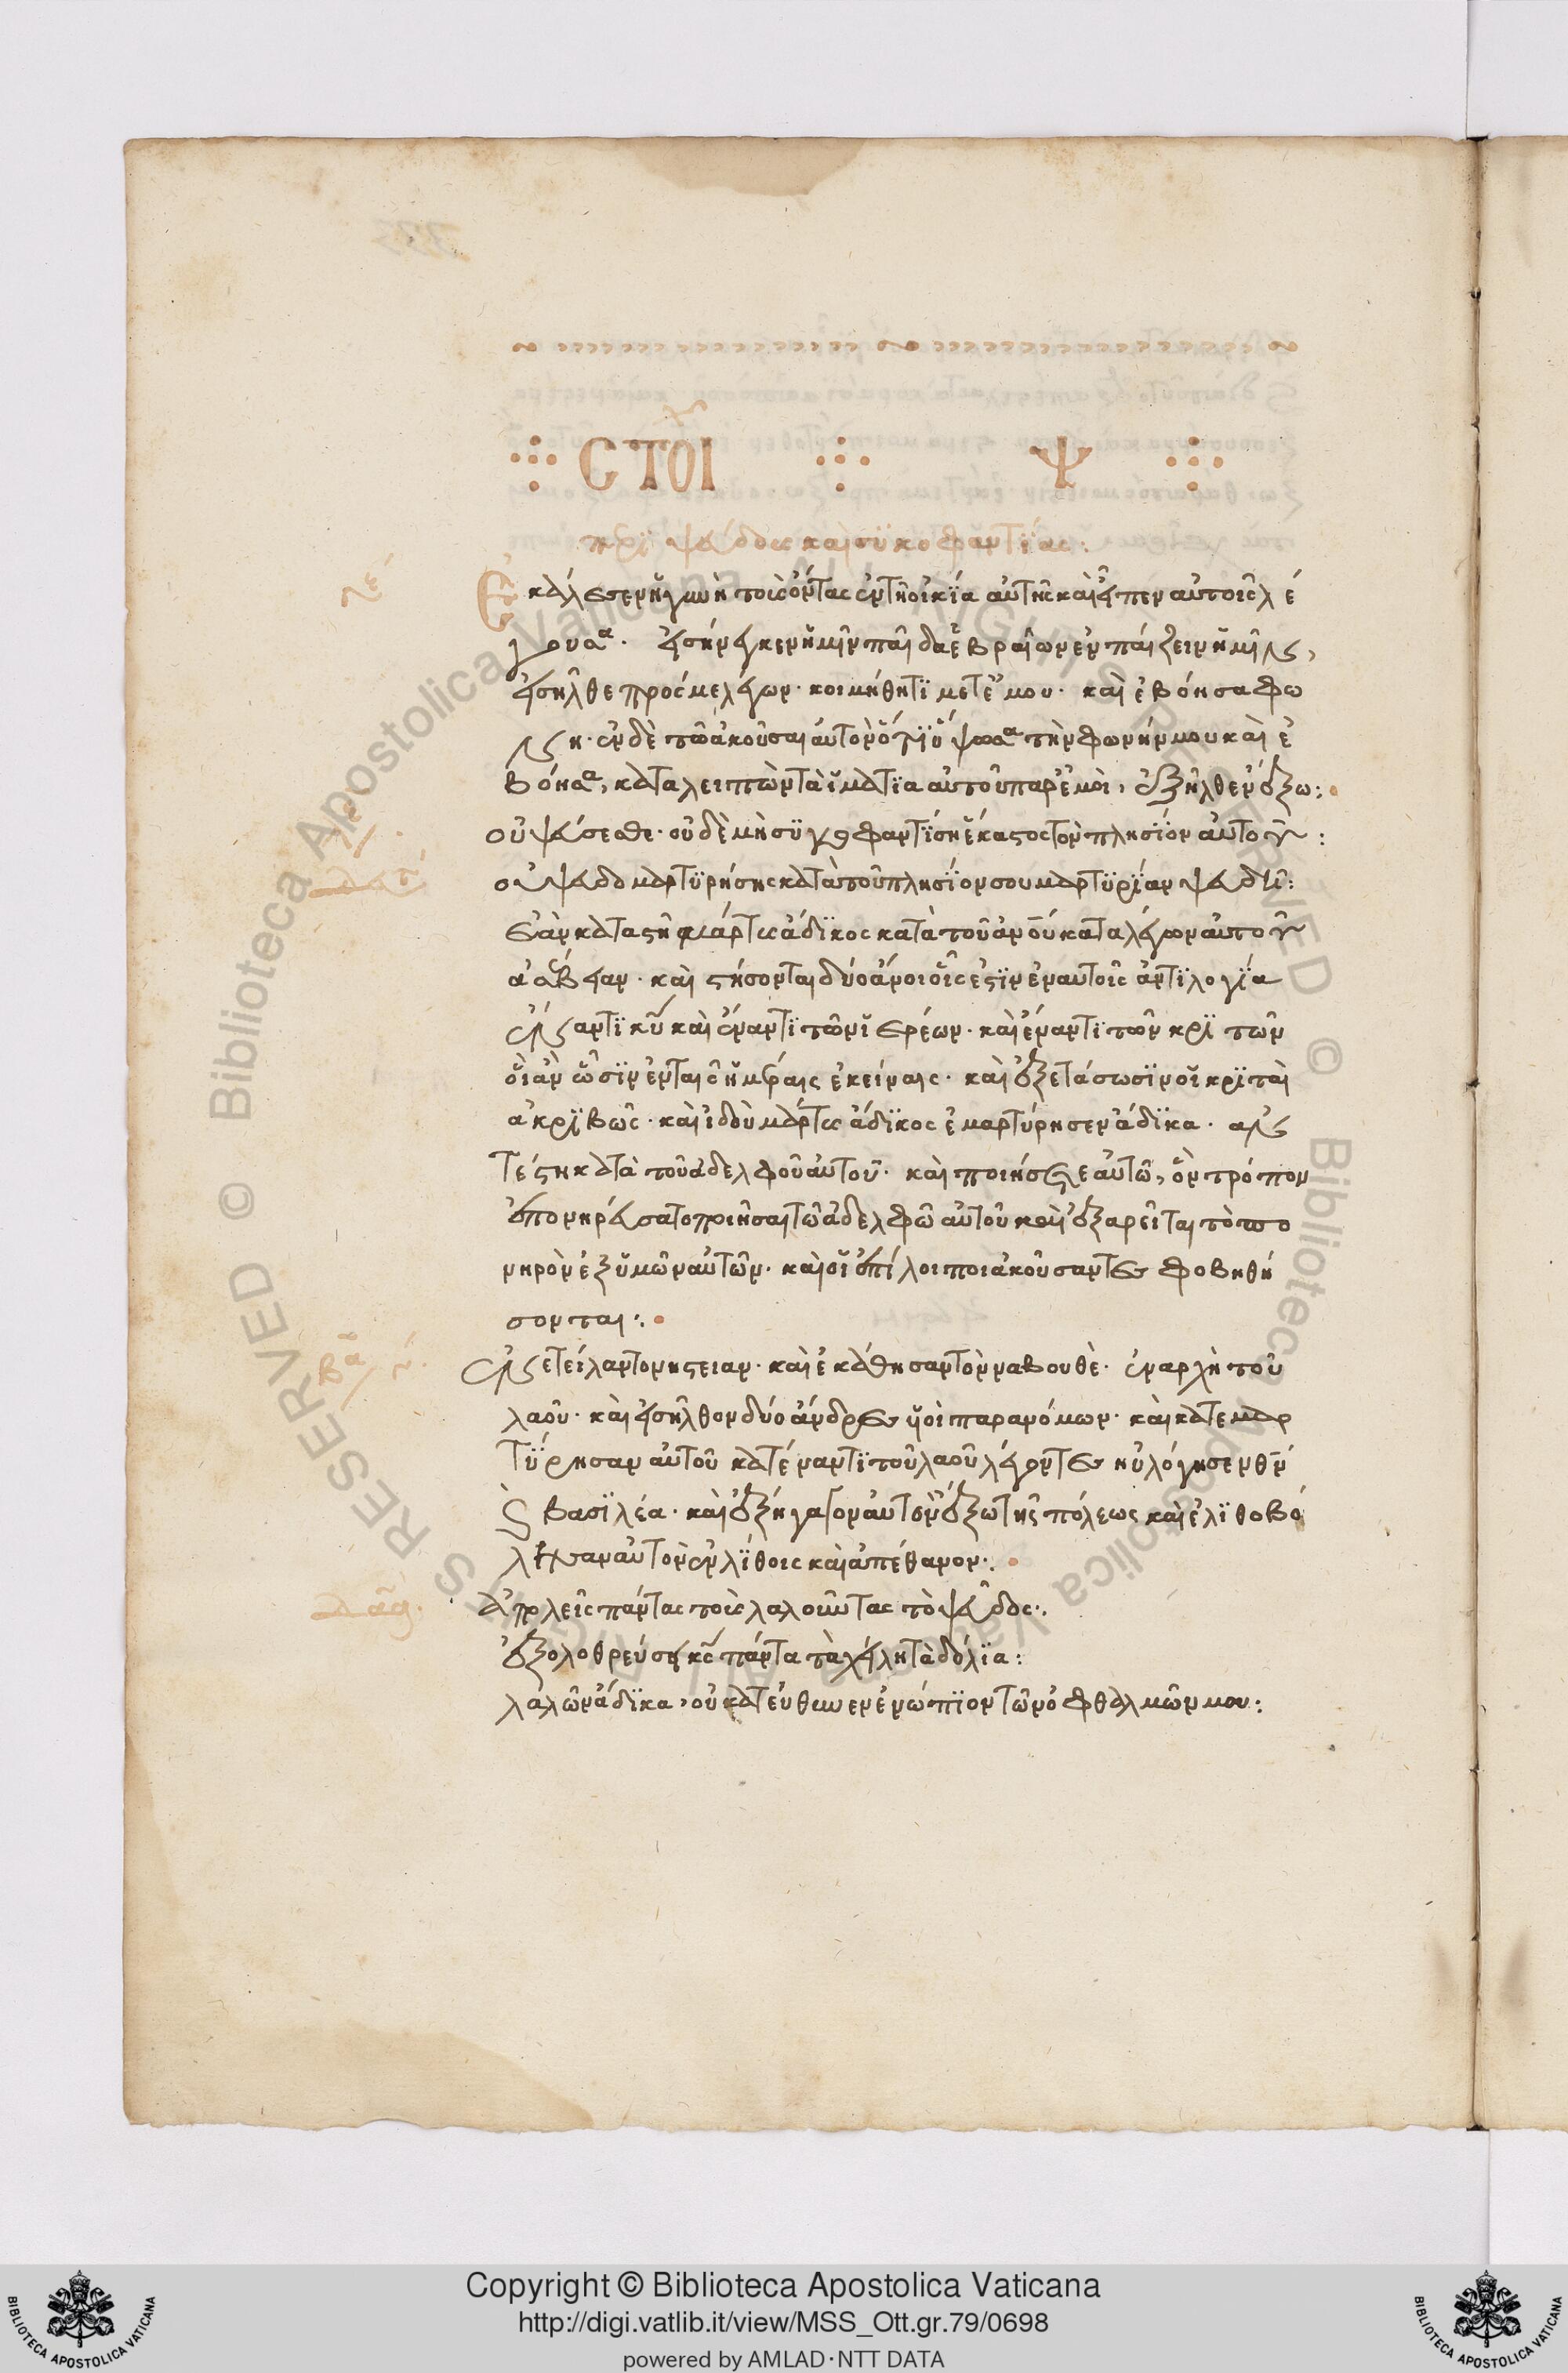 ϹΤΟΙΧ Ψ
περὶ ψεύδους καὶ συκοφαντίας:
Ἐκάλεσεν ἡ γυνὴ τοὺς ὄντας ἐν τῇ οἰκία αὐτῆς καὶ εἶπεν αὐτοῖς λέ
γουσα. εἰσήνεγκεν ἡμῖν παῖδα ἑβραῖων ἐμπαίζειν ἡμῖν,
εἰσῆλθε πρός με λέγων. κοιμήθητι μετ' ἐμου. καὶ ἐβόησα φω
νη. ἐν δὲ τῶ ἀκοῦσαι αὐτὸν ὅτι ὕψωσα τὴν φωνήν μου καὶ ἐ
βόησα, καταλειπὼν τὰ ἱμάτια αὐτοῦ παρ' ἐμοὶ, ἐξῆλθεν ἔξω:
οὐ ψεύσεσθε. οὐδὲ μὴ συκοφαντίση ἕκαστος τὸν πλησίον αὐτοῦ:
οὐ ψευδομαρτυρήσης κατὰ τοῦ πλησίον σου μαρτυρίαν ψευδῆ:
Ἐὰν καταστῆ μάρτυς ἄδικος κατὰ τοῦ ἀνου καταλέγων αὐτοῦ
ἀσέβειαν. καὶ στήσονται δύο ἄνοι οἷς ἐστὶν ἐν αὐτοῖς ἀντιλογία
ἔναντι κυ καὶ ἔναντι τῶν ἱερέων. καὶ ἔναντι τῶν κριτῶν
οἳ ἂν ὦσιν ἐν ταῖς ἡμέραις ἐκείναις. καὶ ἐξετάσωσιν οἱ κριταὶ
ἀκριβῶς. καὶ ἰδοὺ μάρτυς ἄδικος ἐμαρτύρησεν ἄδικα. ἀν
τέστη κατὰ τοῦ ἀδελφοῦ αὐτοῦ. καὶ ποιήσεται αὐτῶ, ὃν τρόπον
ἐπονηρεύσατο ποιῆσαι τῶ ἀδελφῶ αὐτοῦ καὶ ἐξαρεῖται τὸ πο
νηρὸν ἐξ ὑμῶν αὐτῶν. καὶ οἱ ἐπίλοιποι ἀκοῦσαντες φοβηθή
σονται:
Ἐνετείλαντο νηστείαν. καὶ ἐκάθησαν τὸν ναβουθὲ. ἐν ἀρχῆ τοῦ
λαοῦ. καὶ εἰσῆλθον δύο ἄνδρες υἱοὶ παρανόμων. καὶ κατεμαρ
τύρησαν αὐτοῦ κατέναντι τοῦ λαοῦ λέγοντες ηὐλόγησεν θν
καὶ βασιλέα. καὶ ἐξήγαγον αὐτὸν ἔξω τῆς πόλεως καὶ ἐλιθοβό
λησαν αὐτὸν ἐν λίθοις καὶ ἀπέθανον:
Ἀπολεῖς πάντας τοὺς λαλοῦντας τὸ ψεῦδος:
ἐξολοθρεύσει κς πάντα τὰ χείλη τὰ δόλια:
λαλῶν ἄδικα, οὐ κατεύθυνεν ἐνώπιον τῶν ὀφθαλμῶν μου:
Copyright © Biblioteca Apostolica Vaticana
http://digi.vatlib.it/view/MSS_Ott.gr.79/0698
powered by AMLAD·NTT DATA